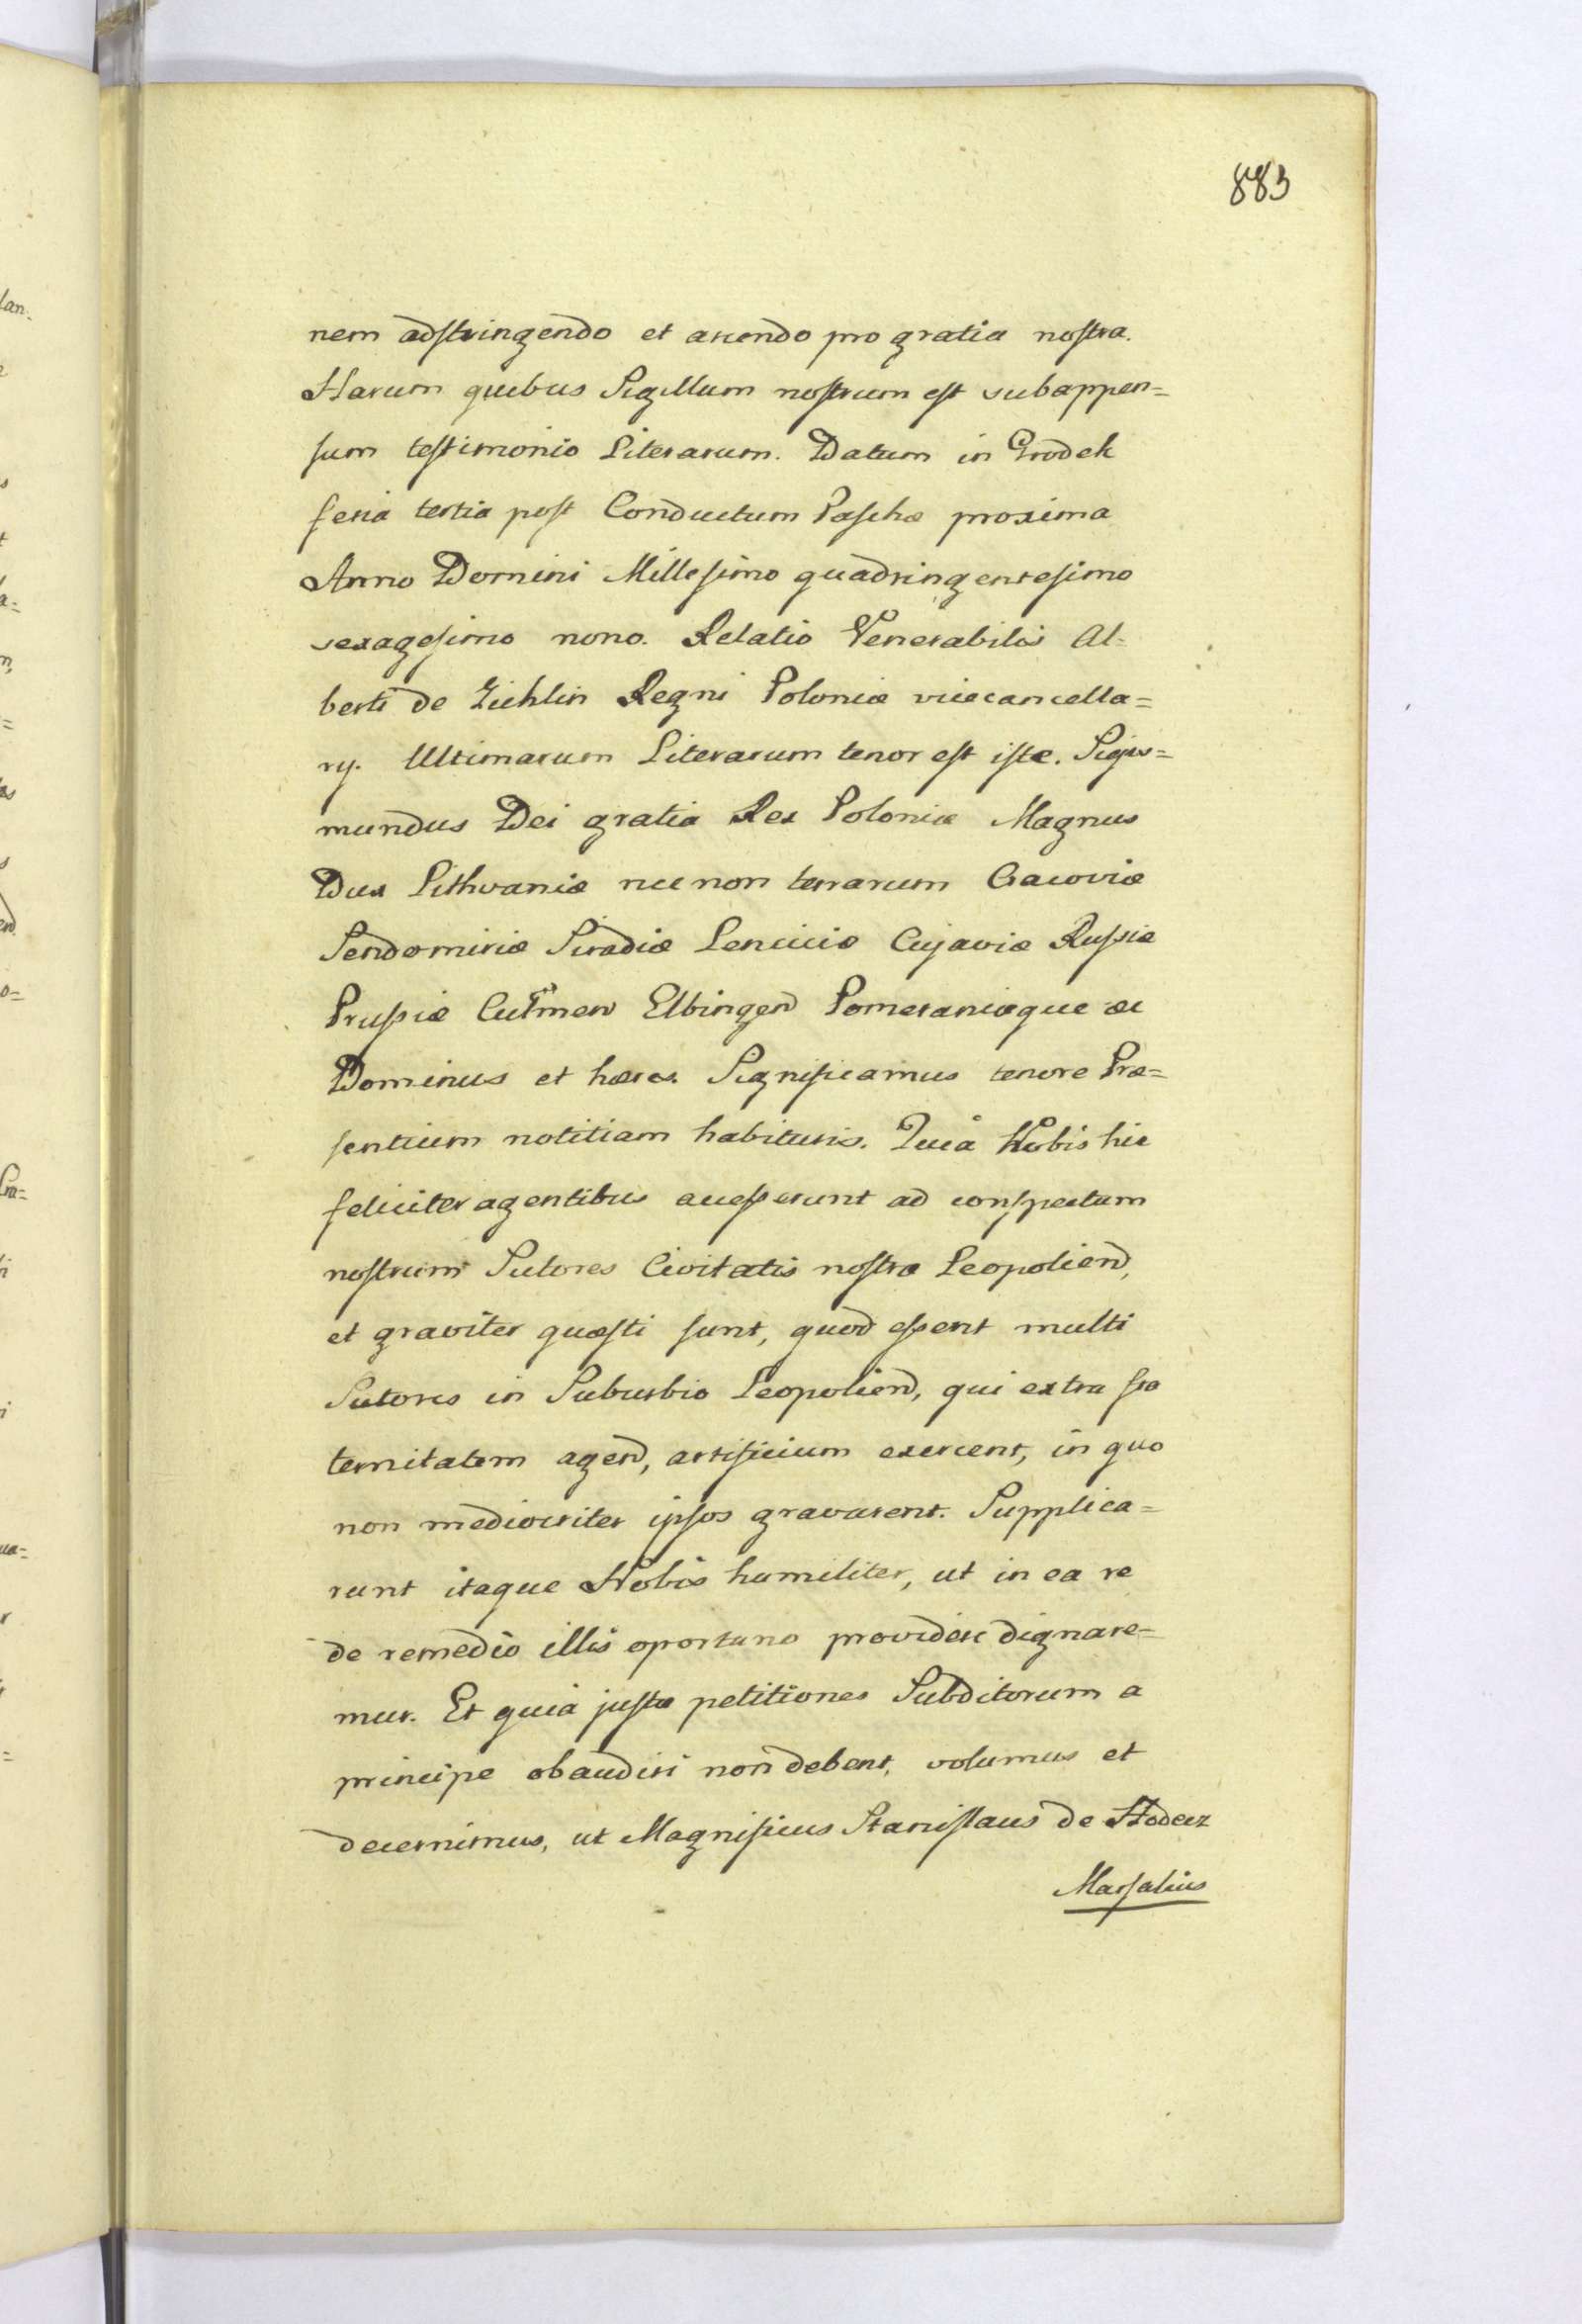 883
nem adstringendo et arcendo pro gratia nostra.
Harum quibus Sigillum nostrum est subappen=
sum testimonio Literarum. Datum in Grodek
feria tertia post Conductum Paschæ proxima
Anno Domini Millesimo quadringentesimo
sexagesimo nono. Relatio Venerabilis Al=
berti de Zichlin Regni Poloniæ vicecancella=
ry. Ultimarum Literarum tenor est iste. Sigis=
mundus Dei gratia Rex Poloniæ Magnus
Dux Lithvaniæ nec non terrarum Cracoviæ
Sendomiriæ Siradiæ Lenciciæ Cujaviæ Russiæ
Prussiæ Culmen Elbingen Pomeraniæque ac
Dominus et hæres. Significamus tenore Præ=
sentium notitiam habituris. Quia Nobis hic
feliciter agentibus accesserunt ad conspectum
nostrum Sutores Civitatis nostræ Leopolien,
et graviter quæsti sunt, quod essent multi
Sutores in Suburbio Leopolien, qui extra fra
ternitatem agen, artificium exercent, in quo
non mediocriter ipsos gravarent. Supplica=
runt itaque Nobis humiliter, ut in ea re
de remedio illis oportuno providere dignare=
mur. Et quia justæ petitiones Subditorum a
principe obaudiri non debent, volumus et
decernimus, ut Magnificus Stanislaus de Hodecz
Marsalius